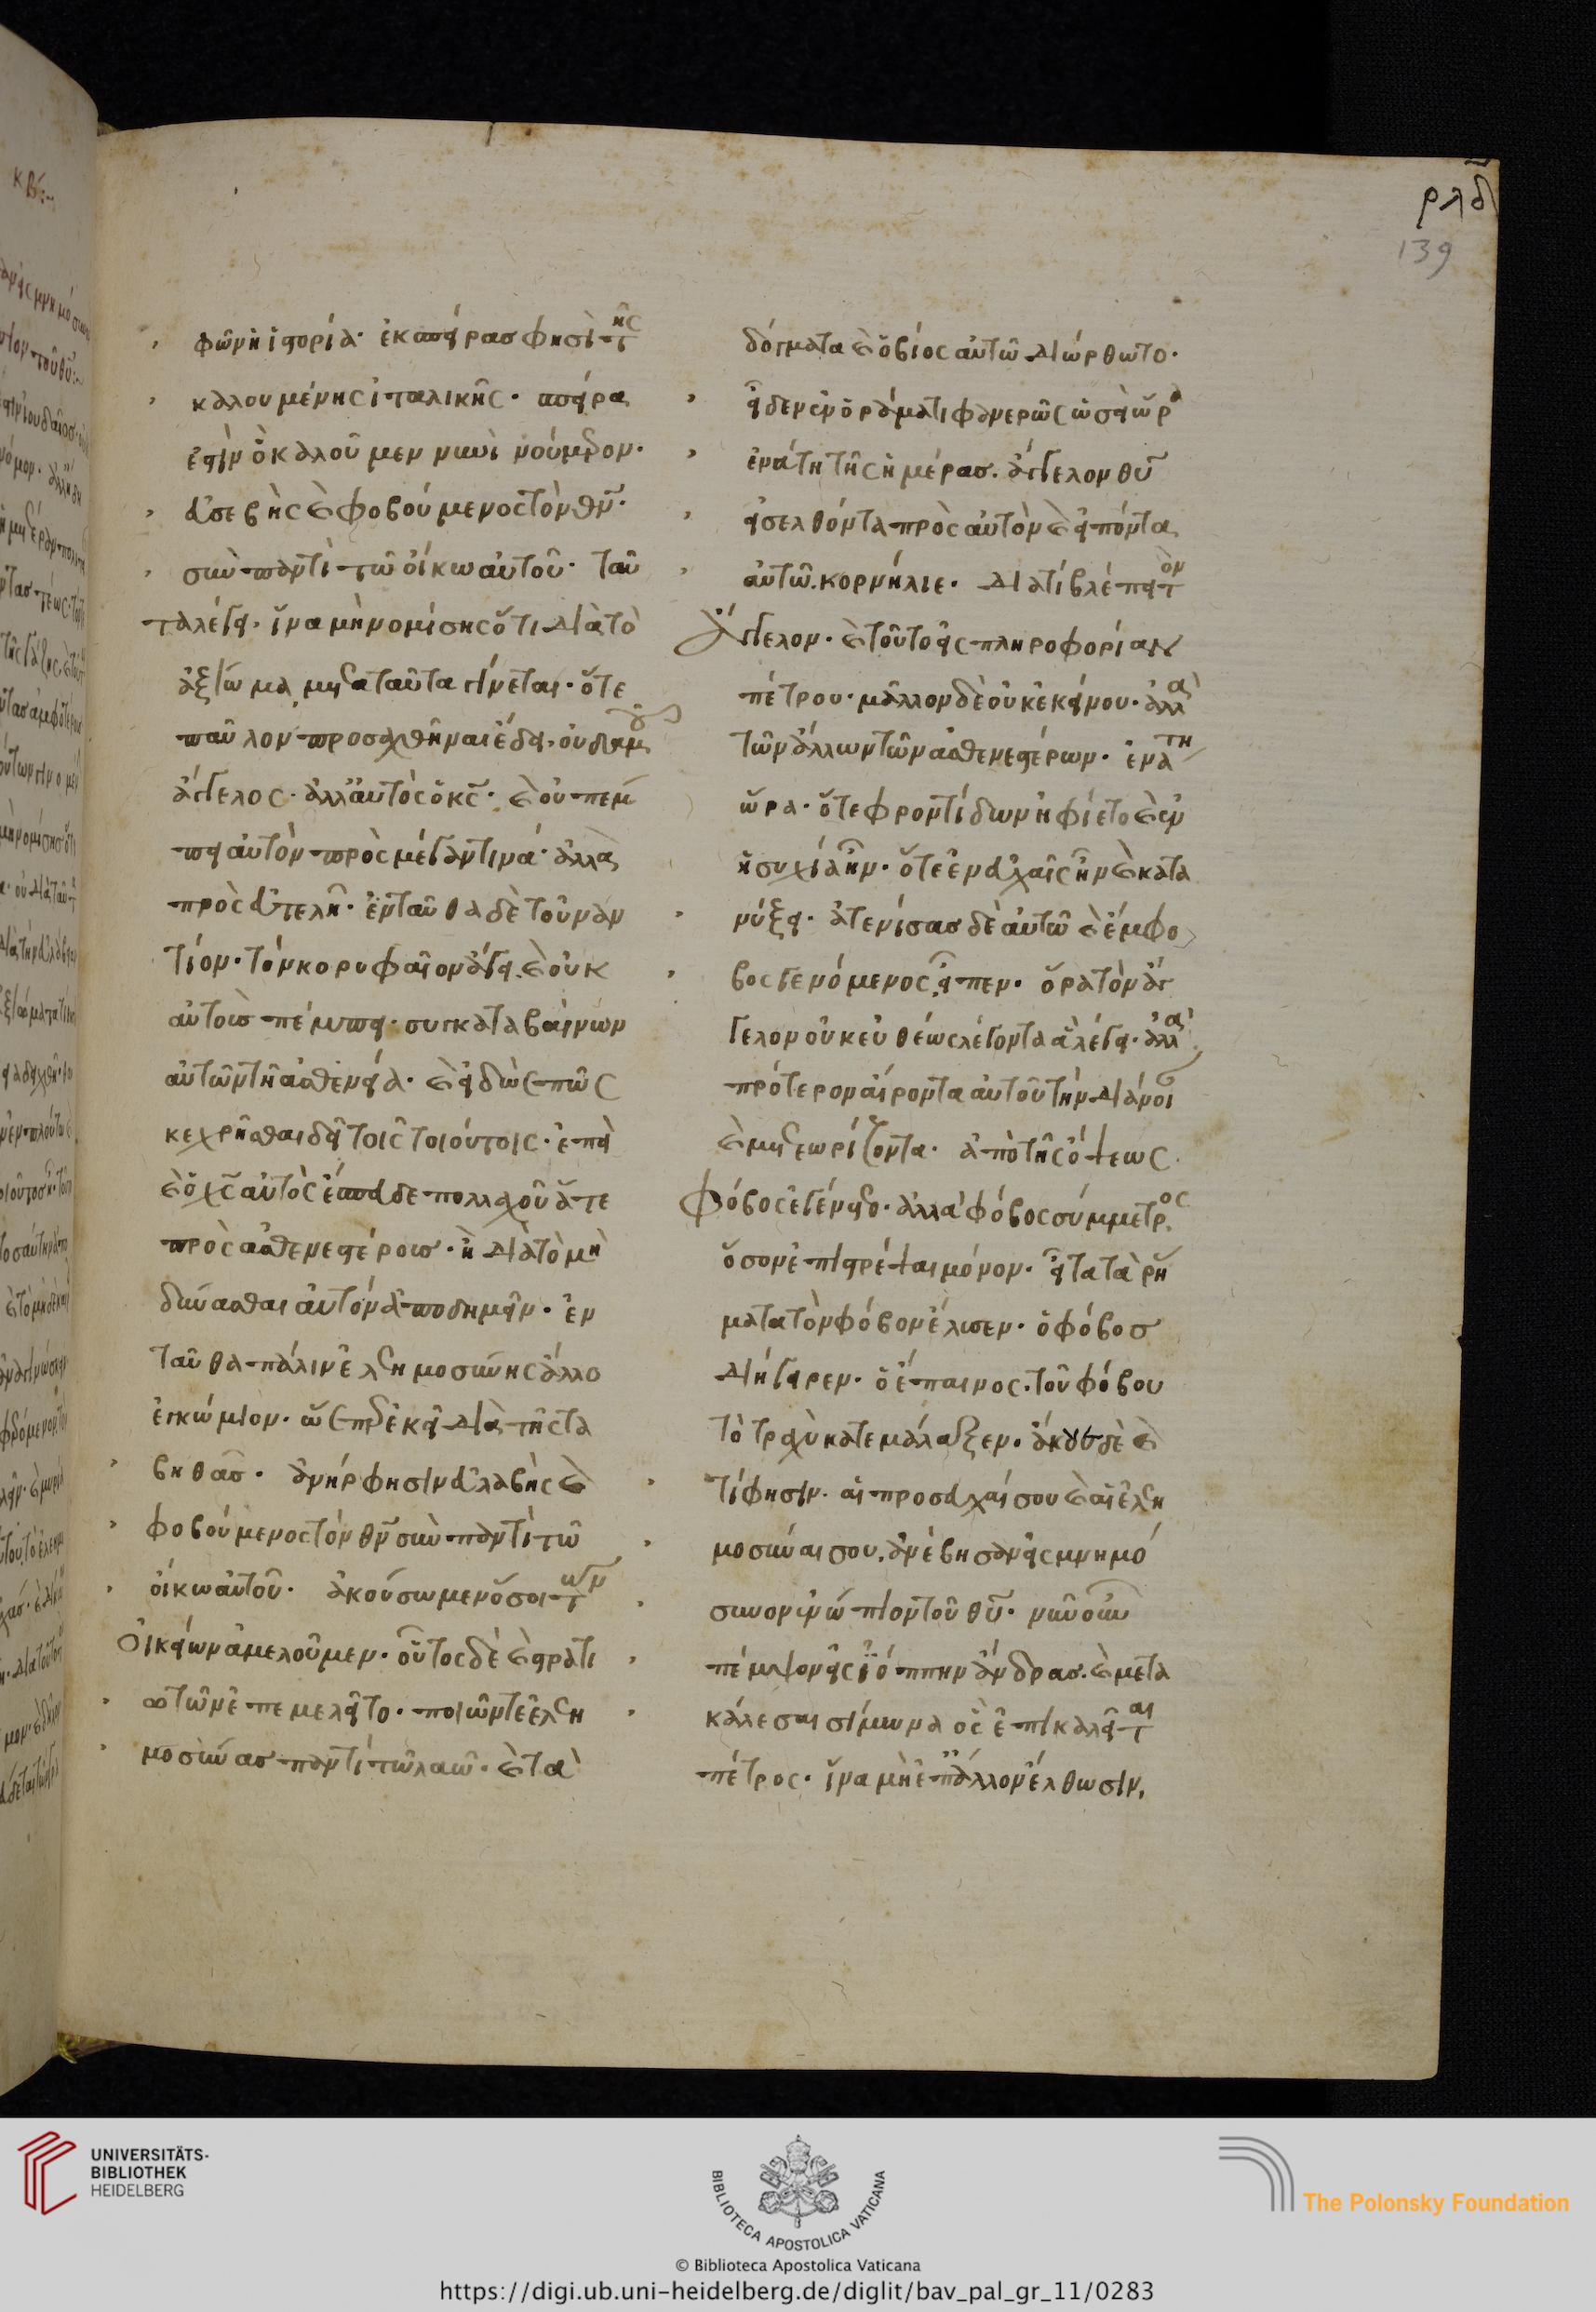 ρλδ
139
φῶν ἡ ἱστορία· ἐκ σπείρας φησὶ τῆς
καλουμένης ἰταλικῆς· σπεῖρα
ἐστὶν ὃ καλοῦμεν νυνὶ νούμερον·
εὐσεβὴς καὶ φοβούμενος τὸν θν·
σὺν παντὶ τῶ οἴκω αὐτοῦ· ταῦ
τα λέγει· ἵνα μὴ νομίσης ὅτι διὰ τὸ
ἀξίωμα μετὰ ταῦτα γίνεται· ὅτε
παῦλον προσαχθῆναι ἔδει· οὐδαμοῦ
ἄγγελος· ἀλλ' αὐτὸς ὁ κς· καὶ οὐ πέμ
πει αὐτὸν πρὸς μέγαν τινά· ἀλλὰ
πρὸς εὐτελῆ· ἐνταῦθα δὲ τοὐναν
τίον· τὸν κορυφαῖον ἄγει· καὶ οὐκ
αὐτοὺς πέμπει· συγκαταβαίνων
αὐτῶν τῆ ἀσθενεία· καὶ εἰδὼς πῶς
κεχρῆσθαι δεῖ τοῖς τοιούτοις· ἐπεὶ
καὶ ὁ χς αὐτὸς ἔσπευδε πολλαχοῦ ἅτε
πρὸς ἀσθενεστέρους· ἢ διὰ τὸ μὴ
δύνασθαι αὐτὸν ἀποδημεῖν· ἐν
ταῦθα πάλιν ἐλεημοσύνης ἄλλο
ἐγκώμιον· ὥσπερ ἐκεῖ διὰ τῆς τα
βηθᾶς· ἀνήρ φησιν εὐλαβὴς καὶ
φοβούμενος τὸν θν σὺν παντὶ τῶ
οἴκω αὐτοῦ· ἀκούσωμεν ὅσοι τῶν
οἰκείων ἀμελοῦμεν· οὗτος δὲ καὶ στρατι
ωτῶν ἐπεμελεῖτο· ποιῶν τε ἐλεη
μοσύνας παντὶ τῶ λαῶ· καὶ τὰ
δόγματα καὶ ὁ βίος αὐτῶ διώρθωτο·
εἶδεν ἐν ὁράματι φανερῶς ὡσεὶ ὥρα
ἐνάτη τῆς ἡμέρας· ἄγγελον θυ
εἰσελθόντα πρὸς αὐτὸν καὶ εἰπόντα
αὐτῶ· κορνήλιε· διατί βλέπει τὸν
ἄγγελον· καὶ τοῦτο εἰς πληροφορίαν
πέτρου· μᾶλλον δὲ οὐκ ἐκείνου· ἀλλὰ
τῶν ἄλλων τῶν ἀσθενεστέρων· ἐνάτη
ὥρα· ὅτε φροντίδων ἠφίετο καὶ ἐν
ἡσυχία ἦν· ὅτε ἐν εὐχαῖς ἦν καὶ κατα
νύξει· ἀτενίσας δὲ αὐτῶ καὶ ἔμφο
βος γενόμενος εἶπεν· ὅρα τὸν ἄγ
γελον οὐκ εὐθέως λέγοντα ἃ λέγει· ἀλλὰ
πρότερον αἴροντα αὐτοῦ τὴν διάνοι
καὶ μετεωρίζοντα· ἀπὸ τῆς ὄψεως·
φόβος ἐγένετο· ἀλλὰ φόβος σύμμετρος
ὅσον ἐπιστρέψαι μόνον· εἶτα τὰ ῥή
ματα τὸν φόβον ἔλυσεν· ὁ φόβος
διήγειρεν· ὁ ἔπαινος· τοῦ φόβου
τὸ τραχὺ κατεμάλαξεν· ἄκουε δὲ καὶ
τί φησιν· αἱ προσευχαί σου καὶ αἱ ἐλεη
μοσύναι σου· ἀνέβησαν εἰς μνημό
συνον ἐνώπιον τοῦ θυ· νῦν οὖν
πέμψον εἰς ἰόππην ἄνδρας· καὶ μετα
κάλεσαι σίμωνα ὃς ἐπικαλεῖται
πέτρος· ἵνα μὴ ἐπ' ἄλλον ἔλθωσιν,
UNIVERSITÄTS-
BIBLIOTHEK
HEIDELBERG
BIBLIOTECA APOSTOLICA VATICANA
The Polonsky Foundation
© Biblioteca Apostolica Vaticana
https://digi.ub.uni-heidelberg.de/diglit/bav_pal_gr_11/0283